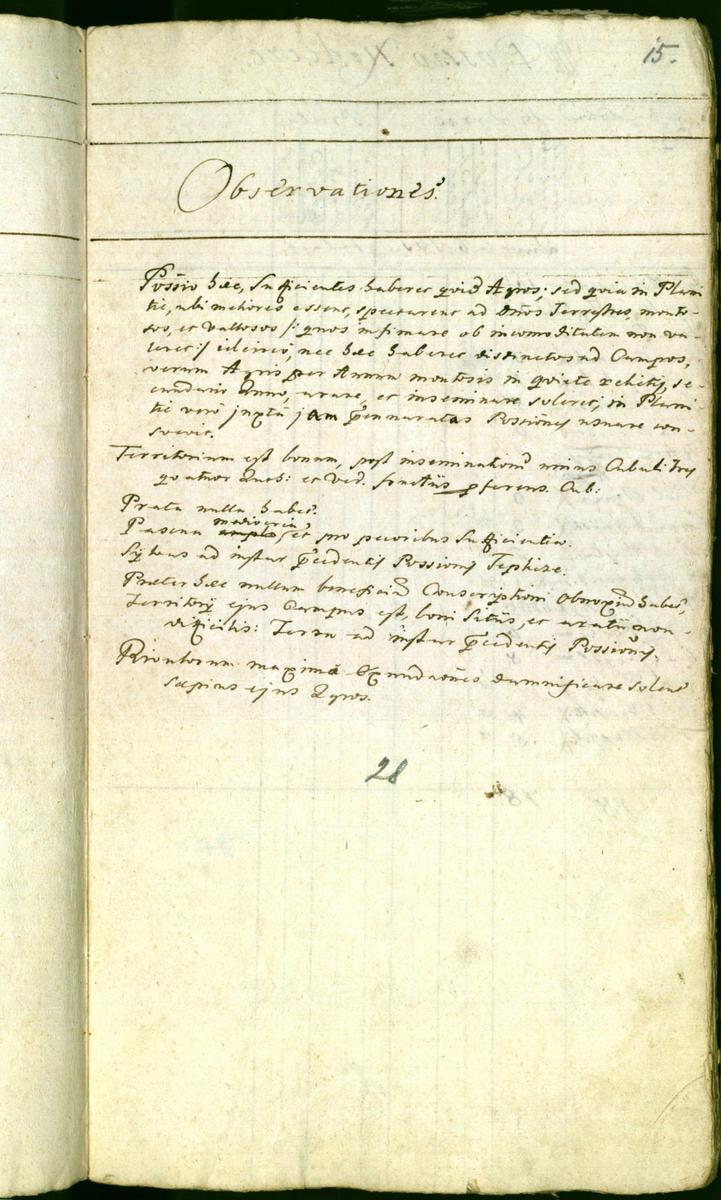 15.
Observationes.
Possio haec, Sufficientes haberet quid Agros; sed quia in Plani
tie, ubi meliores essent, spectarent ad Dnos Terrestres, monto-
sos, et Vallosos /: quos infimare ob incomoditatem non va-
leret :/ idcirco, nec haec haberet distinctos ad Campos,
verum Agris per Annum montosis in quiete relictis, se-
cundario Anno, arare, et inseminare soleret, in Plani-
tie vero juxta jam pennaratas Possiones usuare con-
suevit.
Territorium est bonum, post inseminationem unius Cubuli tres
quatuor et Ved. ferens. Cub:
Prata nulla habet.
Pascua mediocria et pro pecoribus Sufficientia.
Sylvas ad instar pcedentis Possionis Teplicze.
Praeter haec nullum beneficium Conscryptioni Obnoxium habet,
Territorij ejus Campus est, boni Situs, et aratu non-
difficilis: Terra ad instar pcedentis Possionis.
Rivulorum maxima Exundationes damnificare solent
saepius ejus Agros.
28